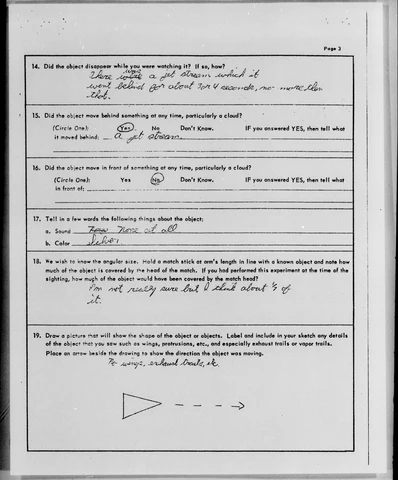 Page 3
14. Did the object disappear while you were watching it? If so, how?
There was a jet stream which it
went behind for about 3 or 4 seconds, no more then
that.
15. Did the object move behind something at any time, particularly a cloud?
(Circle One): Yes No Don't Know. IF you answered YES, then tell what
it moved behind: a jet stream
16. Did the object move in front of something at any time, particularly a cloud?
(Circle One): Yes No Don't Know. IF you answered YES, then tell what
in front of:
17. Tell in a few words the following things about the object:
a. Sound None at all
b. Color
18. We wish to know the angular size. Hold a match stick at arm's length in line with a known object and note how
much of the object is covered by the head of the match. If you had performed this experiment at the time of the
sighting, how much of the object would have been covered by the match head?
I'm not really sure but I think about of
it.
19. Draw a picture that will show the shape of the object or objects. Label and include in your sketch any details
of the object that you saw such as wings, protrusions, etc., and especially exhaust trails or vapor trails.
Place an arrow beside the drawing to show the direction the object was moving.
No wings, exhaust trails, etc.